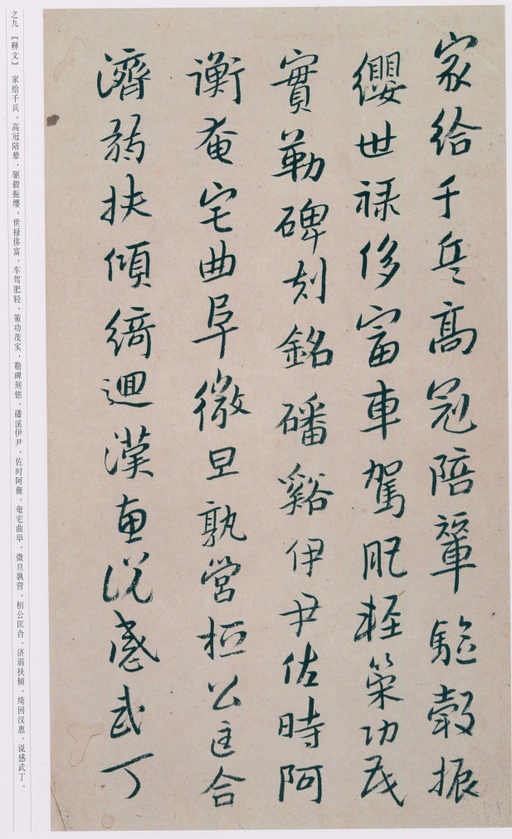 家給千兵高冠陪輦驅轂振
纓世祿侈富車駕肥輕策功茂
實勒碑刻銘磻谿伊尹佐時阿
衡奄宅曲阜微旦孰營桓公匡合
濟弱扶傾綺迴漢惠说感武丁
之九 【释文】 家给千兵，高冠陪辇，驱毂振缨。世禄侈富，车驾肥轻。策功茂实，勒碑刻铭。磻溪伊尹，佐时阿衡。奄宅曲阜，微旦孰营。桓公匡合，济弱扶倾。绮回汉惠，说感武丁。